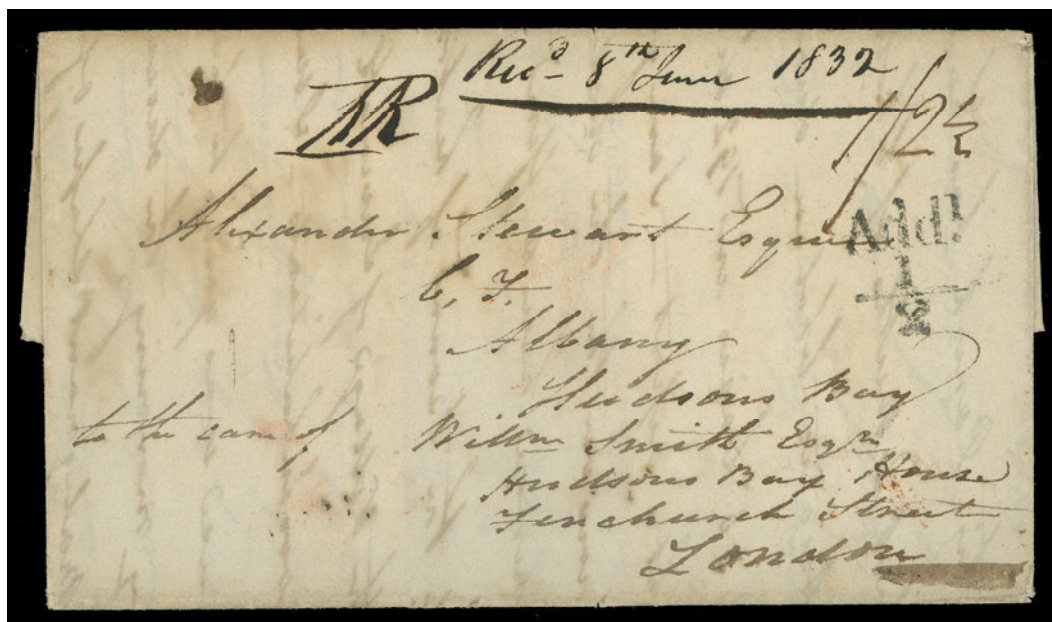 Recd 8th June 1832
1/2½
Alexander Stewart Esquire
Addl
1
2
C, F.
Albany
Hudsons Bay
to the care of Willm Smith Esqre
Hudsons Bay House
Fenchurch Street
London